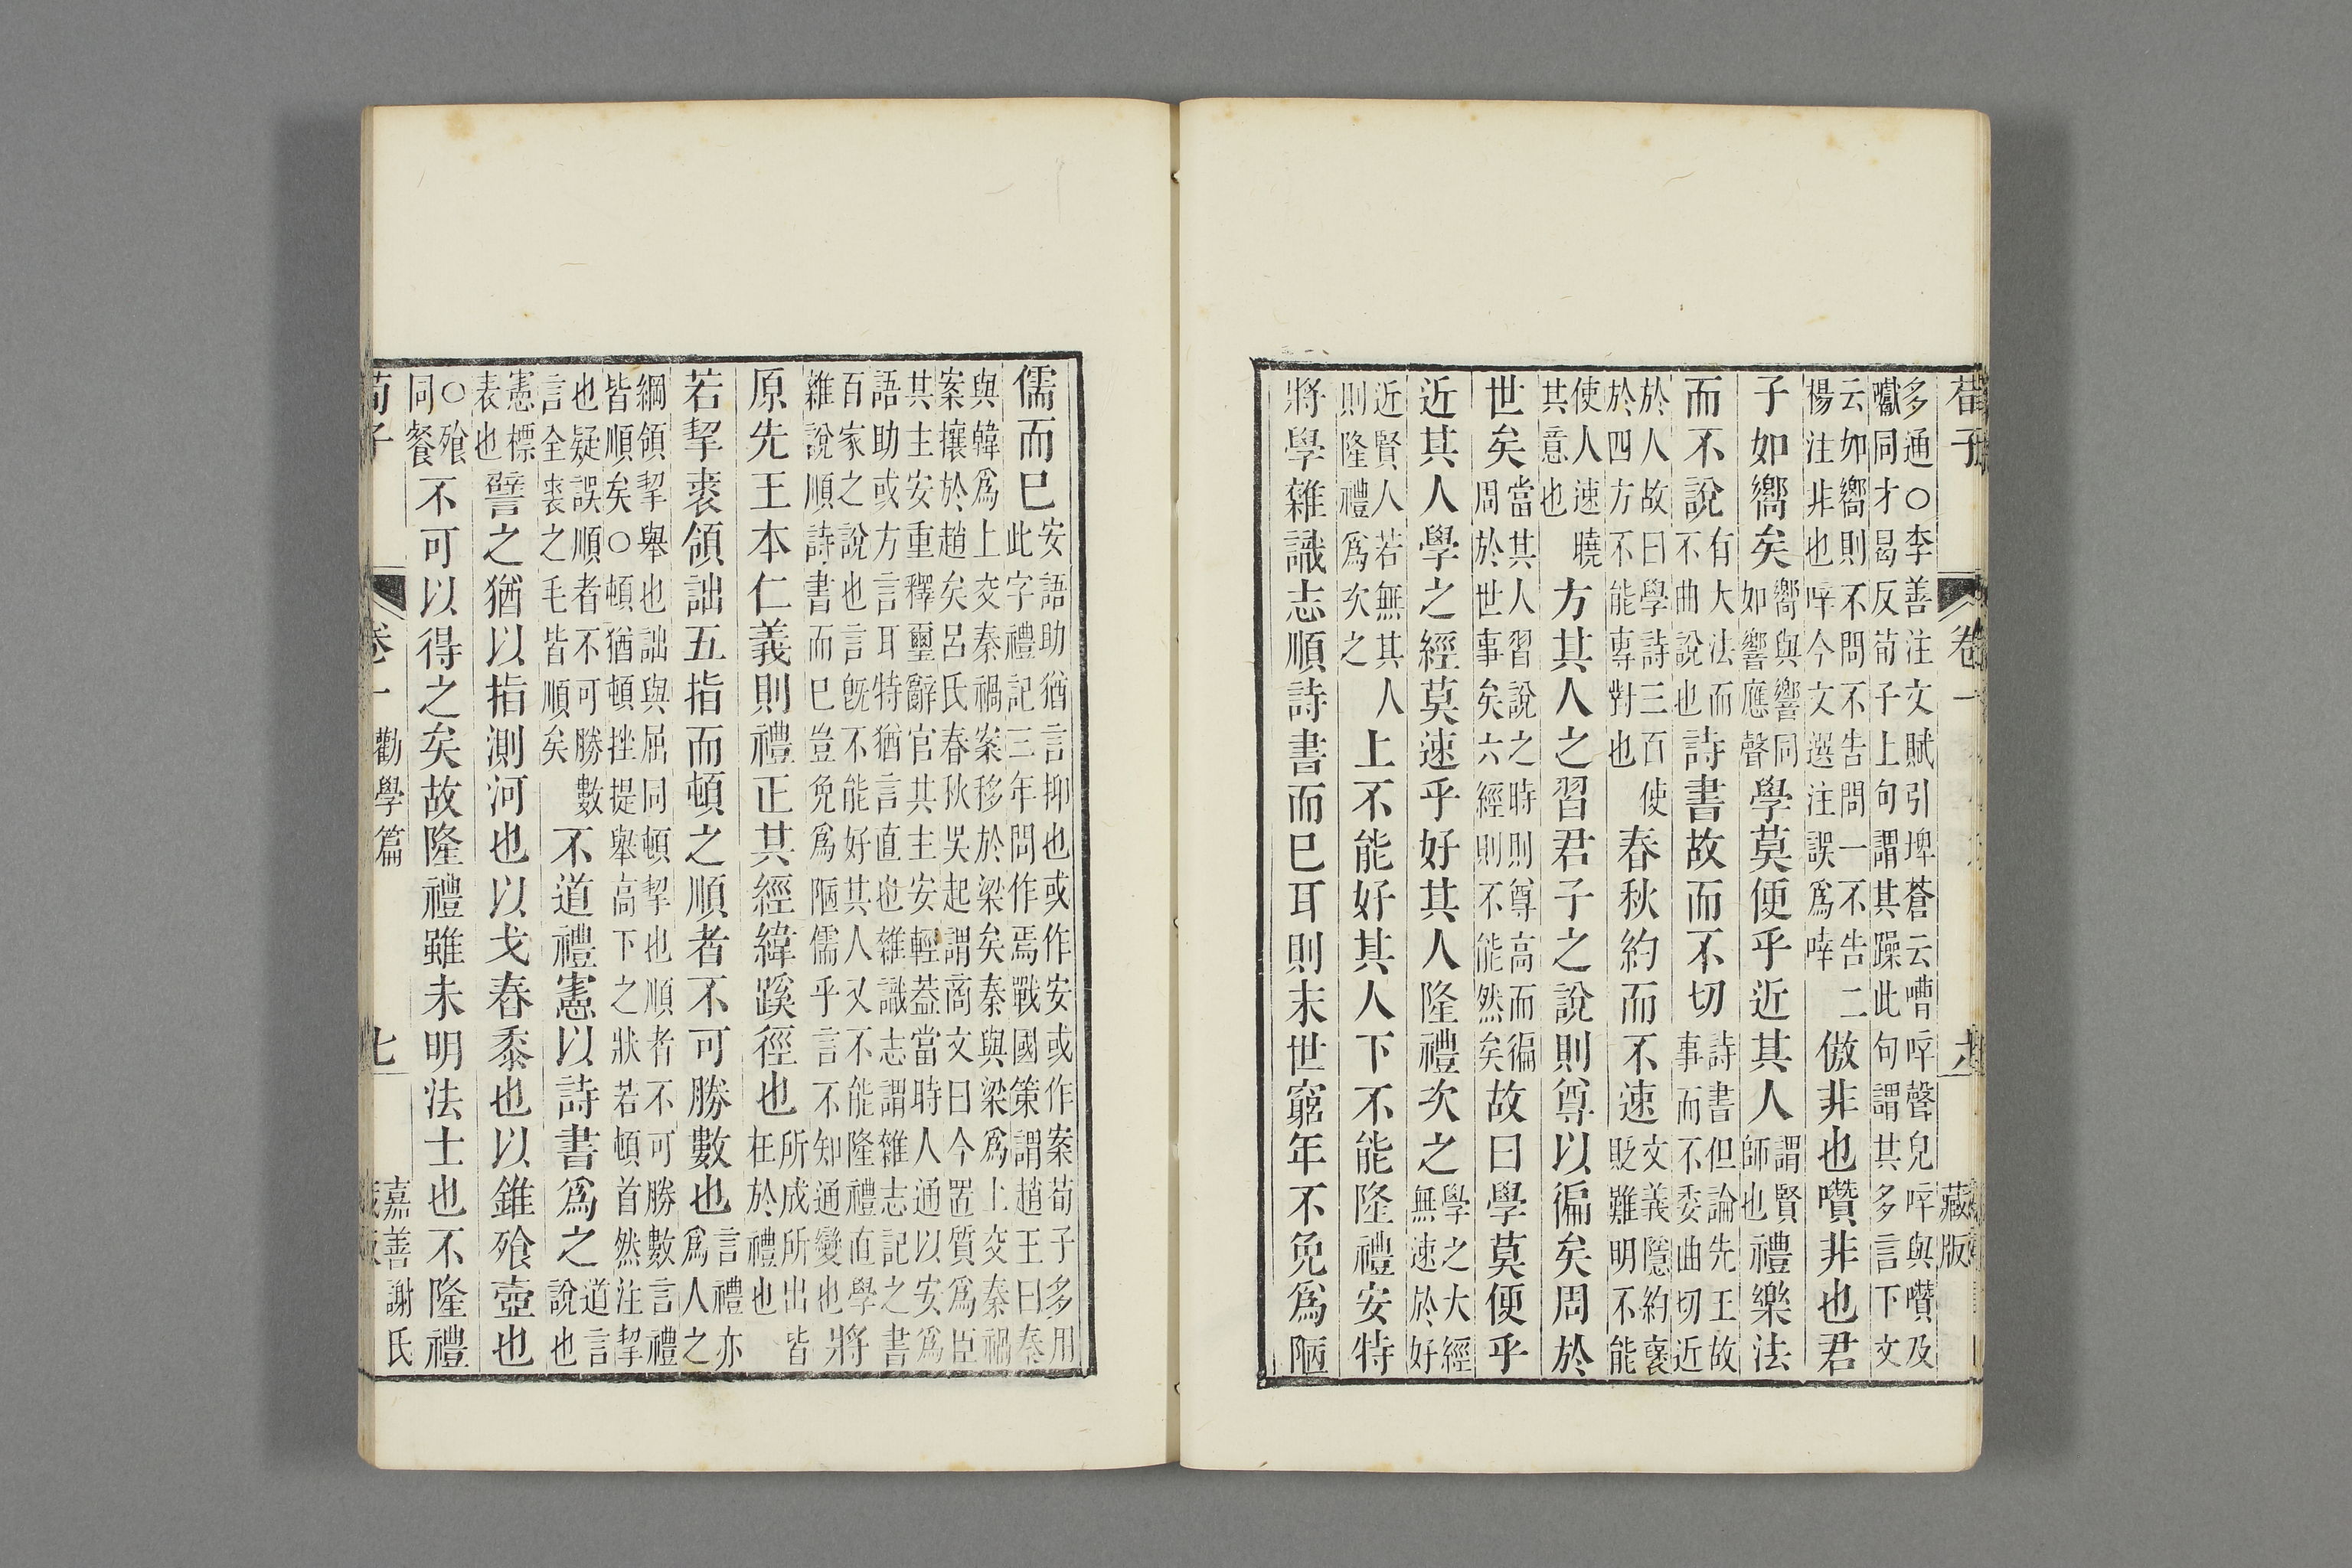 荀子 卷一 六 藏版
多通○李善注文賦引埤蒼云嘈啐聲皃啐與囋及
囐同才曷反荀子上句謂其躁此句謂其多言下文
云如嚮則不問不告問一不告二
楊注非也啐今文選注誤爲啈
傲非也囋非也君
子如嚮矣嚮與響同如響應聲學莫便乎近其人謂賢師也禮樂法
而不說有大法而不曲說也詩書故而不切詩書但論先王故事而不委曲切近
於人故曰學詩三百使於四方不能專對也春秋約而不速文義隱約襃貶難明不能
使人速曉其意也方其人之習君子之說則尊以徧矣周於
世矣當其人習說之時則尊高而徧周於世事矣六經則不能然矣故曰學莫便乎
近其人學之經莫速乎好其人隆禮次之學之大經無速於好
近賢人若無其人則隆禮爲次之上不能好其人下不能隆禮安特
將學雜識志順詩書而已耳則末世窮年不免爲陋
儒而已安語助猶言抑也或作安或作案荀子多用此字禮記三年問作焉戰國策謂趙王曰秦
與韓爲上交秦禍案移於梁矣秦與梁爲上交秦禍
案攘於趙矣呂氏春秋吳起謂商文曰今置質爲臣
其主安重釋璽辭官其主安輕葢當時人通以安爲
語助或方言耳特猶言直也雜識志謂雜志記之書
百家之說也言旣不能好其人又不能隆禮直學
雜說順詩書而已豈免爲陋儒乎言不知通變也
將
原先王本仁義則禮正其經緯蹊徑也所成所出皆在於禮也
若挈裘領詘五指而頓之順者不可勝數也言禮亦爲人之
綱領挈舉也詘與屈同頓挈也順者不可勝數言禮
皆順矣○頓猶頓挫提舉高下之狀若頓首然注挈
也疑誤順者不可勝數言全裘之毛皆順矣不道禮憲以詩書爲之道言說也
憲標表也譬之猶以指測河也以戈舂黍也以錐飱壺也
○飱同餐不可以得之矣故隆禮雖未明法士也不隆禮
荀子 卷一 勸學篇 七 嘉善謝氏藏版